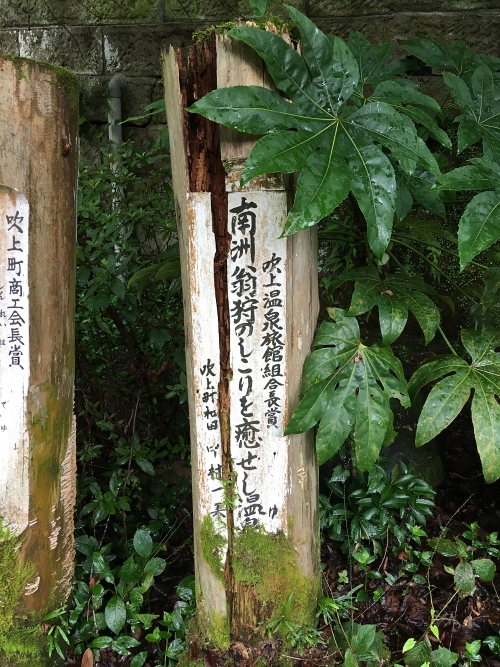 吹上温泉旅館組合長賞
南洲翁狩のしこりを癒せし温泉
ゆ
吹上町和田 中村一
吹上町商工会長賞